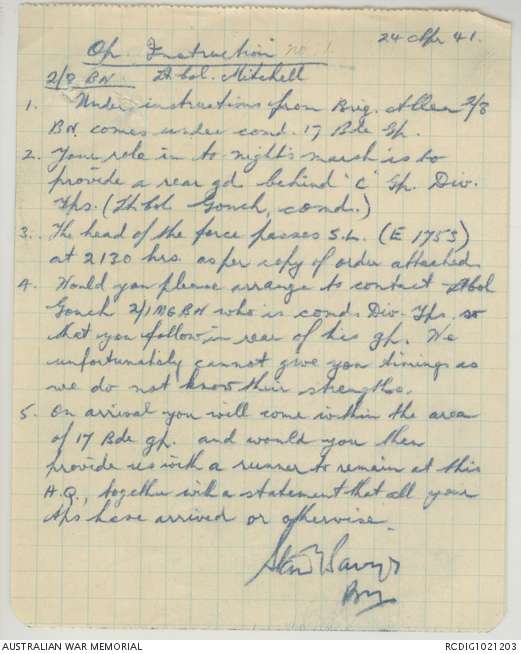 24 Apr 41.
Op. Instruction no 1.
2/8 BN Lt Col. Mitchell
1. Under instructions from Brig. Allen 2/8
BN. comes under comd. 17 Bde Gp.
2. Your role in to night's march is to
provide a rear gd behind "C" Gp. Div.
Tps. (Lt Col Gooch, comd.)
3. The head of the force passes S.L. (E 1753)
at 2130 hrs. as per copy of order attached
4. Would you please arrange to contact Lt Col
Gooch 2/1 MG BN who is comdg Div. Tps. so
that you follow in rear of his gp. We
unfortunately cannot give you timings as
we do not know their strengths.
5. On arrival you will come within the area
of 17 Bde gp. and would you then
provide us with a runner to remain at this
H.Q., together with a statement that all your
tps have arrived or otherwise.
Brig
AUSTRALIAN WAR MEMORIAL
RCDIG1021203